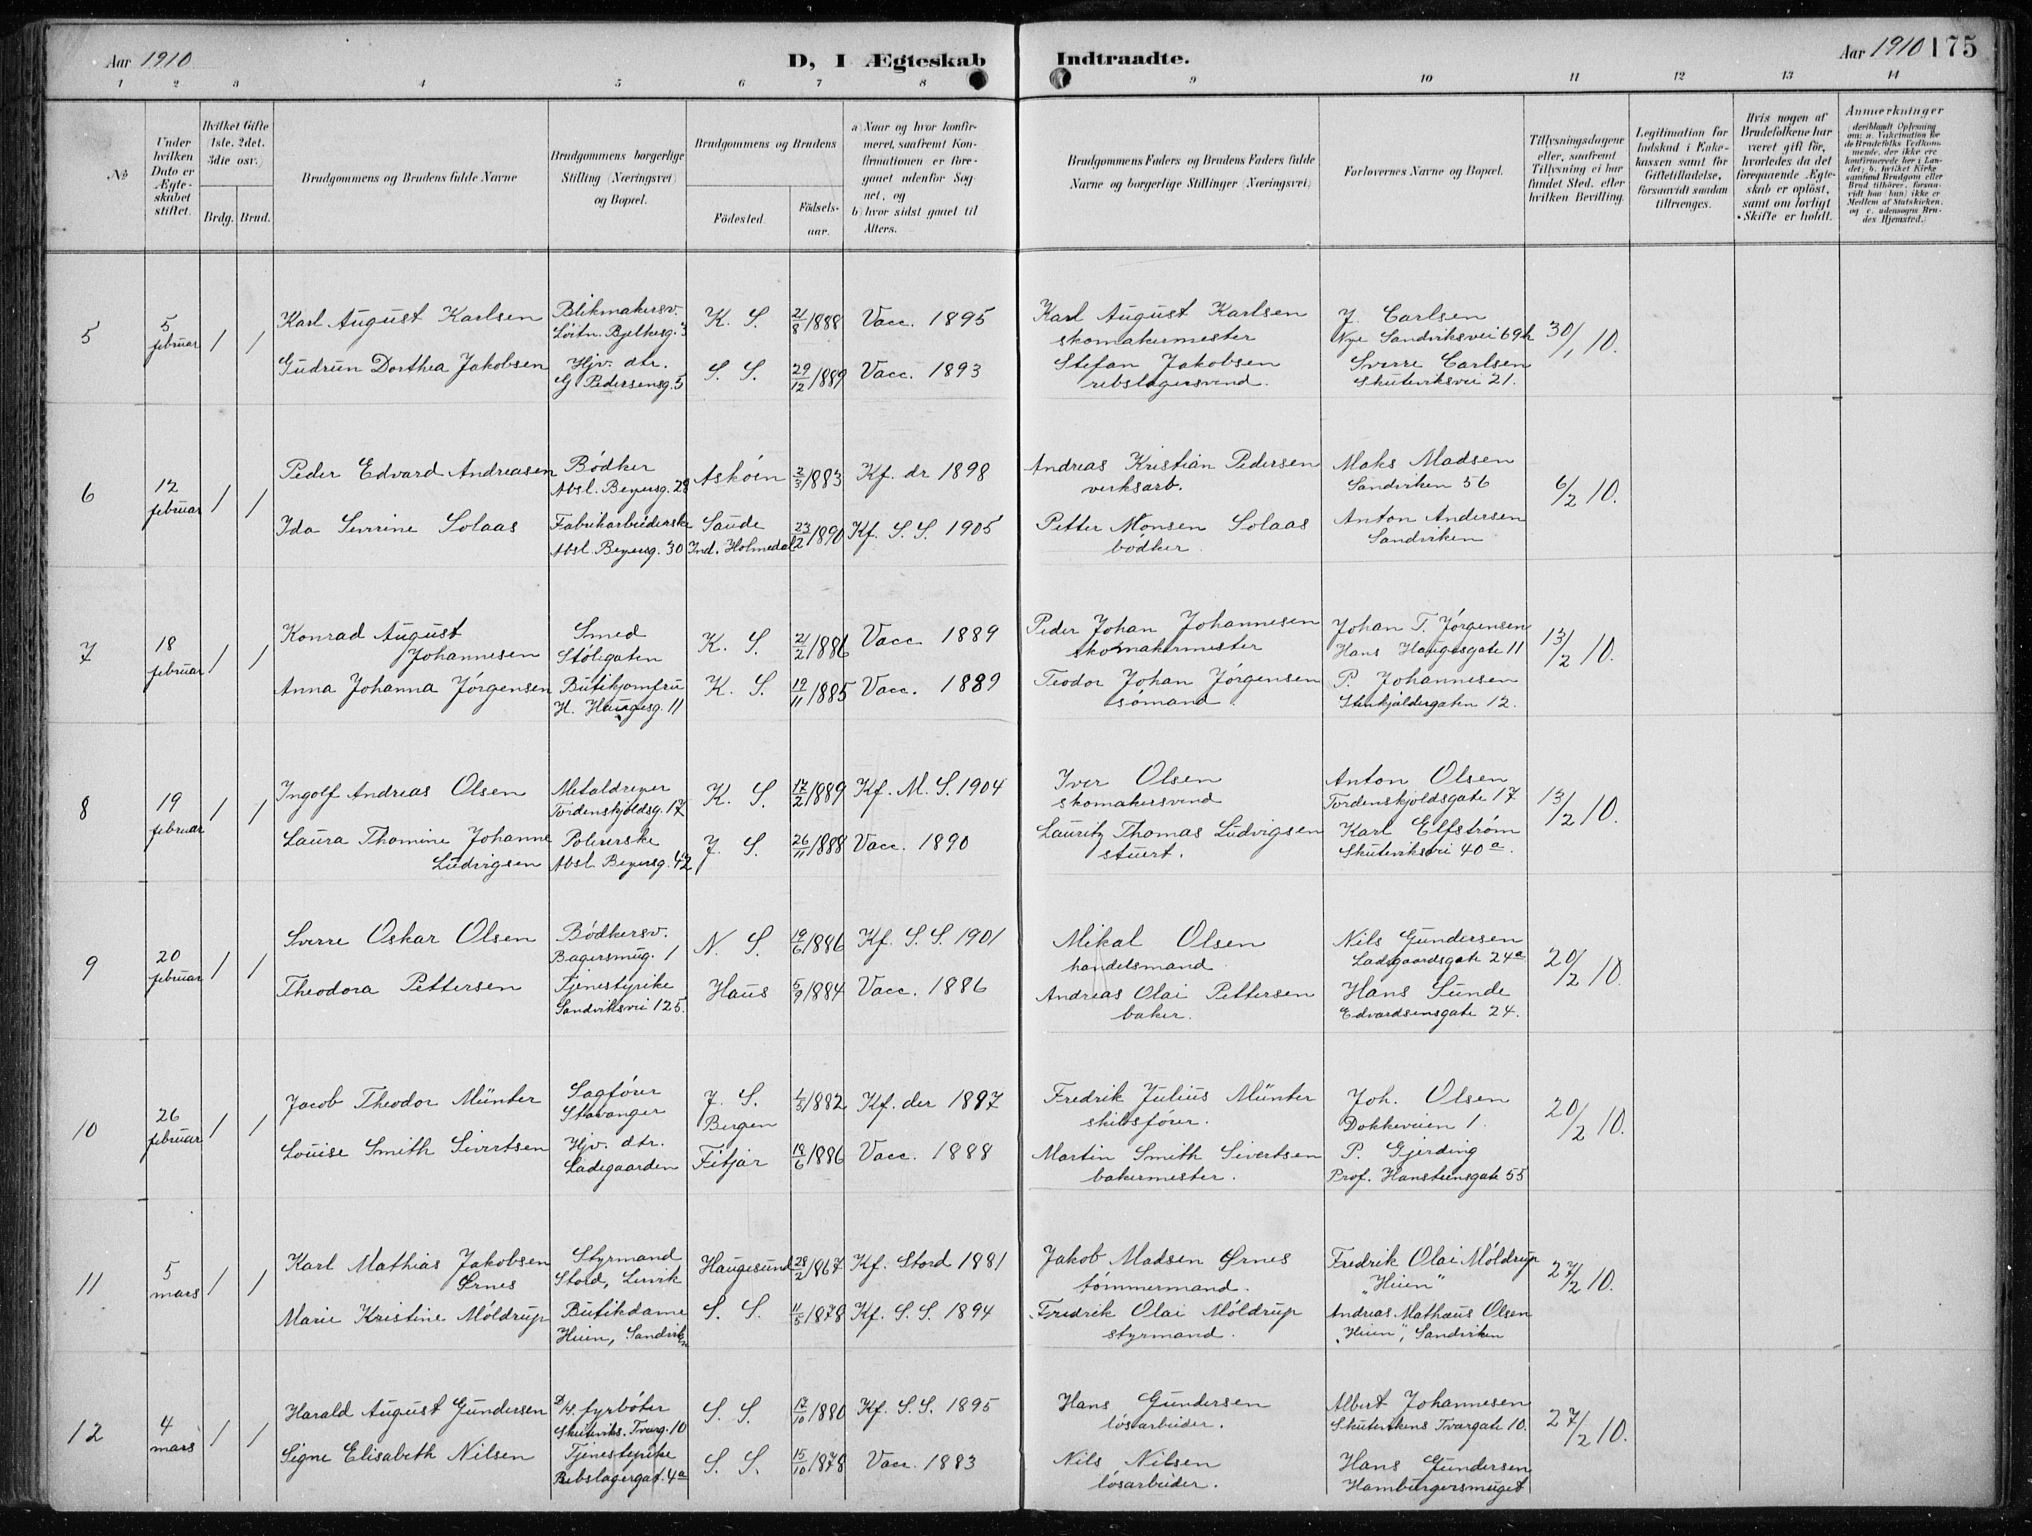 Aar 1910
D, I Ægteskab
Indtraadte.
Aar 1910
175
1 2 3 4 5 6 7 8 9 10 11 12 13 14
No
Under hvilken Dato er Ægteskabet stiftet.
Hvilket Gifte (1ste. 2det. 3die osv.)
Brdg. Brud.
Brudgommens og Brudens fulde Navne
Brudgommens borgerlige Stilling (Næringsvei) og Bopæl.
Brudgommens og Brudens
Fødested.
Fødselsaar.
a) Naar og hvor konfirmeret, saafremt Konfirmationen er foregaaet udenfor Sognet, og
b) hvor sidst gaaet til Alters.
Brudgommens Faders og Brudens Faders fulde Navne og borgerlige Stillinger (Næringsvei).
Forlovernes Navne og Bopæl.
Tillysningsdagene eller, saafremt Tillysning ei har fundet Sted, efter hvilken Bevilling.
Legitimation for Indskud i Enkekassen samt for Giftetilladelse, forsaavidt saadan tiltrænges.
Hvis nogen af Brudefolkene har været gift før, hvorledes da det foregaaende Ægteskab er opløst, samt om lovligt Skifte er holdt.
Anmerkninger
(deriblandt Oplysning om: a. Vakcination for de Brudefolks Vedkommende, der ikke ere konfirmerede her i Landet; b. hvilket Kirkesamfund Brudgom eller Brud tilhører, forsaavidt han (hun) ikke er Medlem af Statskirken, og c. udensogns Brudes Hjemsted.)
5
5 februar
1 1
Karl August Karlsen
Blikmakersv.
Löitn. Bjelkesg. 3
K. S.
21/8 1888
Vacc. 1895
Gudrun Dorthea Jakobsen
Hjv. dtr.
G. Pedersensg. 5
S. S.
29/12 1889
Vacc. 1893
Karl August Karlsen
skomakermester
Stefan Jakobsen
rebslagersvend.
J. Carlsen
Nye Sandviksvei 69h
Sverre Carlsen
Skuteviksvei 21.
30/1 10.
6
12 februar
1 1
Peder Edvard Andreasen
Bødker
Absl. Beyersg. 28
Askøen
2/3 1883
Kf. dr 1898
Ida Severine Solaas
Fabrikarbeiderske
Absl. Beyersg. 30
Saude
Ind. Holmedal
23/2 1890
Kf. S. S. 1905
Andreas Kristian Pedersen
verksarb.
Petter Monsen Solaas
bödker
Maks Madsen
Sandviken 56
Anton Andersen
Sandviken
6/2 10.
7
18 februar
1 1
Konrad August
Johannesen
Smed
Stölegaten
K. S.
21/2 1886
Vacc. 1889
Anna Johanna Jørgensen
Butikjomfru
H. Haugesg. 11
K. S.
19/11 1885
Vacc. 1889
Peder Johan Johannesen
skomakermester
Teodor Johan Jørgensen
sømand.
Johan T. Jørgensen
Hans Haugesgate 11
P. Johannesen
Stenkjeldergaten 12.
13/2 10.
8
19 februar
1 1
Ingolf Andreas Olsen
Metaldreyer
Tordenskjoldsg. 17
K. S.
17/2 1889
Kf. M. S. 1904
Laura Thomine Johanne
Ludvigsen
Polererske
Absl. Beyersg. 42
J. S.
26/11 1888
Vacc. 1890
Iver Olsen
skomakersvend
Lauritz Thomas Ludvigsen
stuert.
Anton Olsen
Tordenskjoldsgate 17
Karl Elfstrøm
Skuteviksvei 40a
13/2 10.
9
20 februar
1 1
Sverre Oskar Olsen
Bödkersv.
Bagersmug. 1
N. S.
19/6 1886
Kf. S. S. 1901
Theodora Pettersen
Tjenestepike
Sandviksvei 125.
Haus
5/9 1884
Vacc. 1886
Mikal Olsen
handelsmand
Andreas Olai Pettersen
baker.
Nils Gundersen
Ladegaardsgate 24a
Hans Sunde
Edvardsensgate 24.
20/2 10.
10
26 februar
1 1
Jacob Theodor Münter
Sagförer
Stavanger
J. S.
Bergen
1/3 1882
Kf. der 1897
Louise Smith Sivertsen
Hjv. dtr.
Ladegaarden
Fitjar
18/6 1886
Vacc. 1888
Fredrik Julius Münter
skibsförer.
Martin Smith Sivertsen
bakermester.
Joh. Olsen
Dokkeveien 1.
P. Gjerding
Prof. Hansteensgate 55
20/2 10.
11
5 mars
1 1
Karl Mathias Jakobsen
Ørnes
Styrmand
Stord, Lervik
Haugesund
28/2 1867
Kf. Stord 1881
Marie Kristine Möldrup
Butikdame
Heien, Sandviken
S. S.
11/5 1878
Kf. S. S. 1894
Jakob Madsen Ørnes
tömmermand.
Fredrik Olai Möldrup
styrmand.
Fredrik Olai Möldrup
"Heien"
Andreas Mathæus Olsen
"Heien", Sandviken
27/2 10.
12
4 mars
1 1
Harald August Gundersen
D/S. fyrböter
Skuteviks. Tverg. 10
S. S.
17/10 1880
Kf. S. S. 1895
Signe Elisabeth Nilsen
Tjenestepike
Rebslagergat. 4a
S. S.
15/10 1878
Vacc. 1883
Hans Gundersen
lösarbeider.
Nils Nilsen
lösarbeider.
Albert Johannesen
Skutevikens Tvergate 10.
Hans Gundersen
Hamburgersmuget
27/2 10.